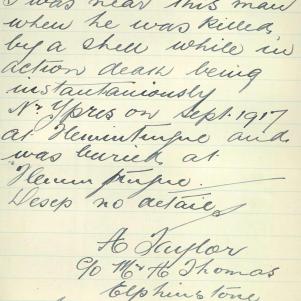 I was near this man
when he was killed
by a shell while in
action death being
instantaniously
Nr Ypres on Sept. 1917
at and
was buried at

Descp no details
A Taylor
C/o Mr H Thomas
Elphinstone